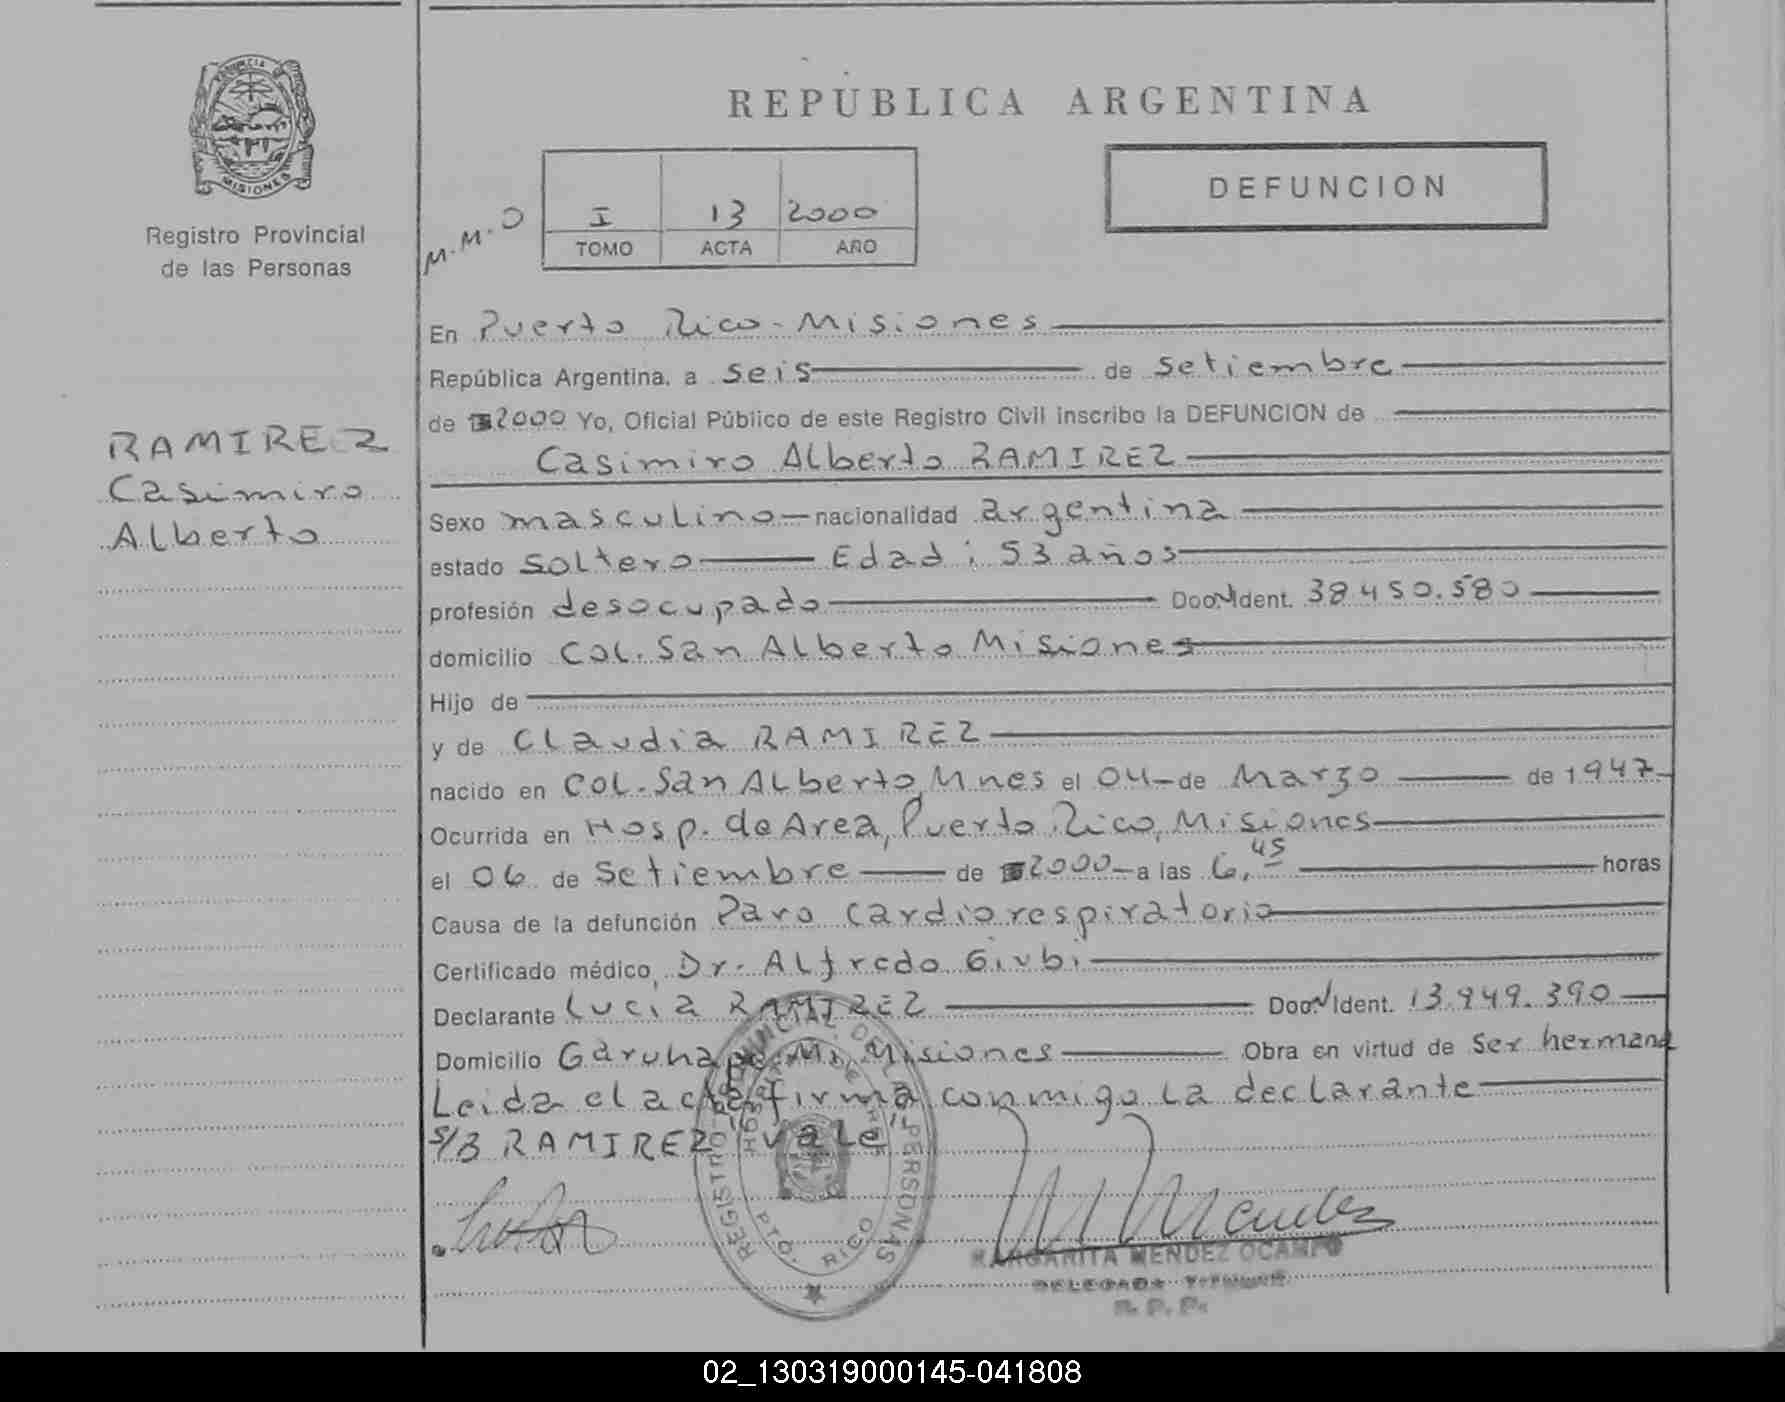 PROVINCIA DE
MISIONES
Registro Provincial
de las Personas
RAMIREZ
Casimiro
Alberto
REPUBLICA ARGENTINA
DEFUNCION
M.M.O
I 13 2000
TOMO ACTA AÑO
En Puerto Rico - Misiones
República Argentina, a seis de setiembre
de 2000 Yo, Oficial Público de este Registro Civil inscribo la DEFUNCION de
Casimiro Alberto RAMIREZ
Sexo masculino nacionalidad argentina
estado soltero Edad: 53 años
profesión desocupado Doc N Ident. 38.450.580
domicilio Col. San Alberto Misiones
Hijo de
y de Claudia RAMIREZ
nacido en Col. San Alberto, Mnes el 04 de Marzo de 1947
Ocurrida en Hosp. de Area, Puerto Rico, Misiones
el 06 de Setiembre de 2000 a las 6,45 horas
Causa de la defunción Paro cardiorespiratorio
Certificado médico, Dr. Alfredo Giubi
Declarante Lucia RAMIREZ Doc N Ident. 13.949.390
Domicilio Garuhape Mi Misiones Obra en virtud de Ser hermana
Leida el acta firma conmigo la declarante
S/B RAMIREZ "vale"
REGISTRO PROVINCIAL DE LAS PERSONAS
PTO. RICO
Mendez
MARGARITA MENDEZ OCAMPO
DELEGADA TITULAR
R. P. P.
02_130319000145-041808